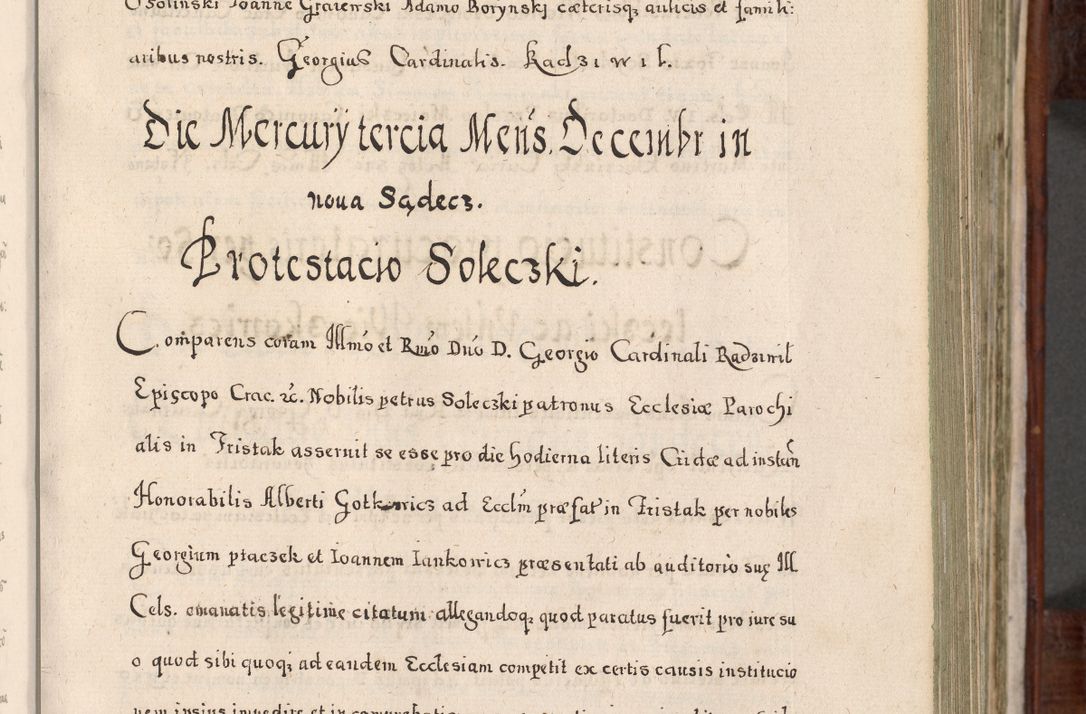 Osolinski Ioanne Graiewski Adamo Borynskj cæterisqꝫ aulicis et famili:
aribus nostris. Georgius Cardinalis. Radziwil.
Die Mercurÿ tercia Mens. Decembr in
noua Sądecz.
Protestacio Soleczki.
Comparens coram Illmo et Rmo Dno D. Georgio Cardinali Radziwil
Episcopo Crac. etc. Nobilis petrus Soleczki patronus Ecclesiæ Parochi
alis in Fristak asseruit se esse pro die hodierna literis Citatæ ad instan
Honorabilis Alberti Gotkowicz ad Ecclm præfat in Fristak per nobiles
Georgium ptaczek et Ioannem Iankowicz præsentati ab auditorio suę Ill
Cels. emanatis legitime citatum allegandoqꝫ quod paratus fuerit pro iure su
o quod sibi quoqꝫ ad eandem Ecclesiam competit ex certis causis institucio
nem ipsius impedire et in